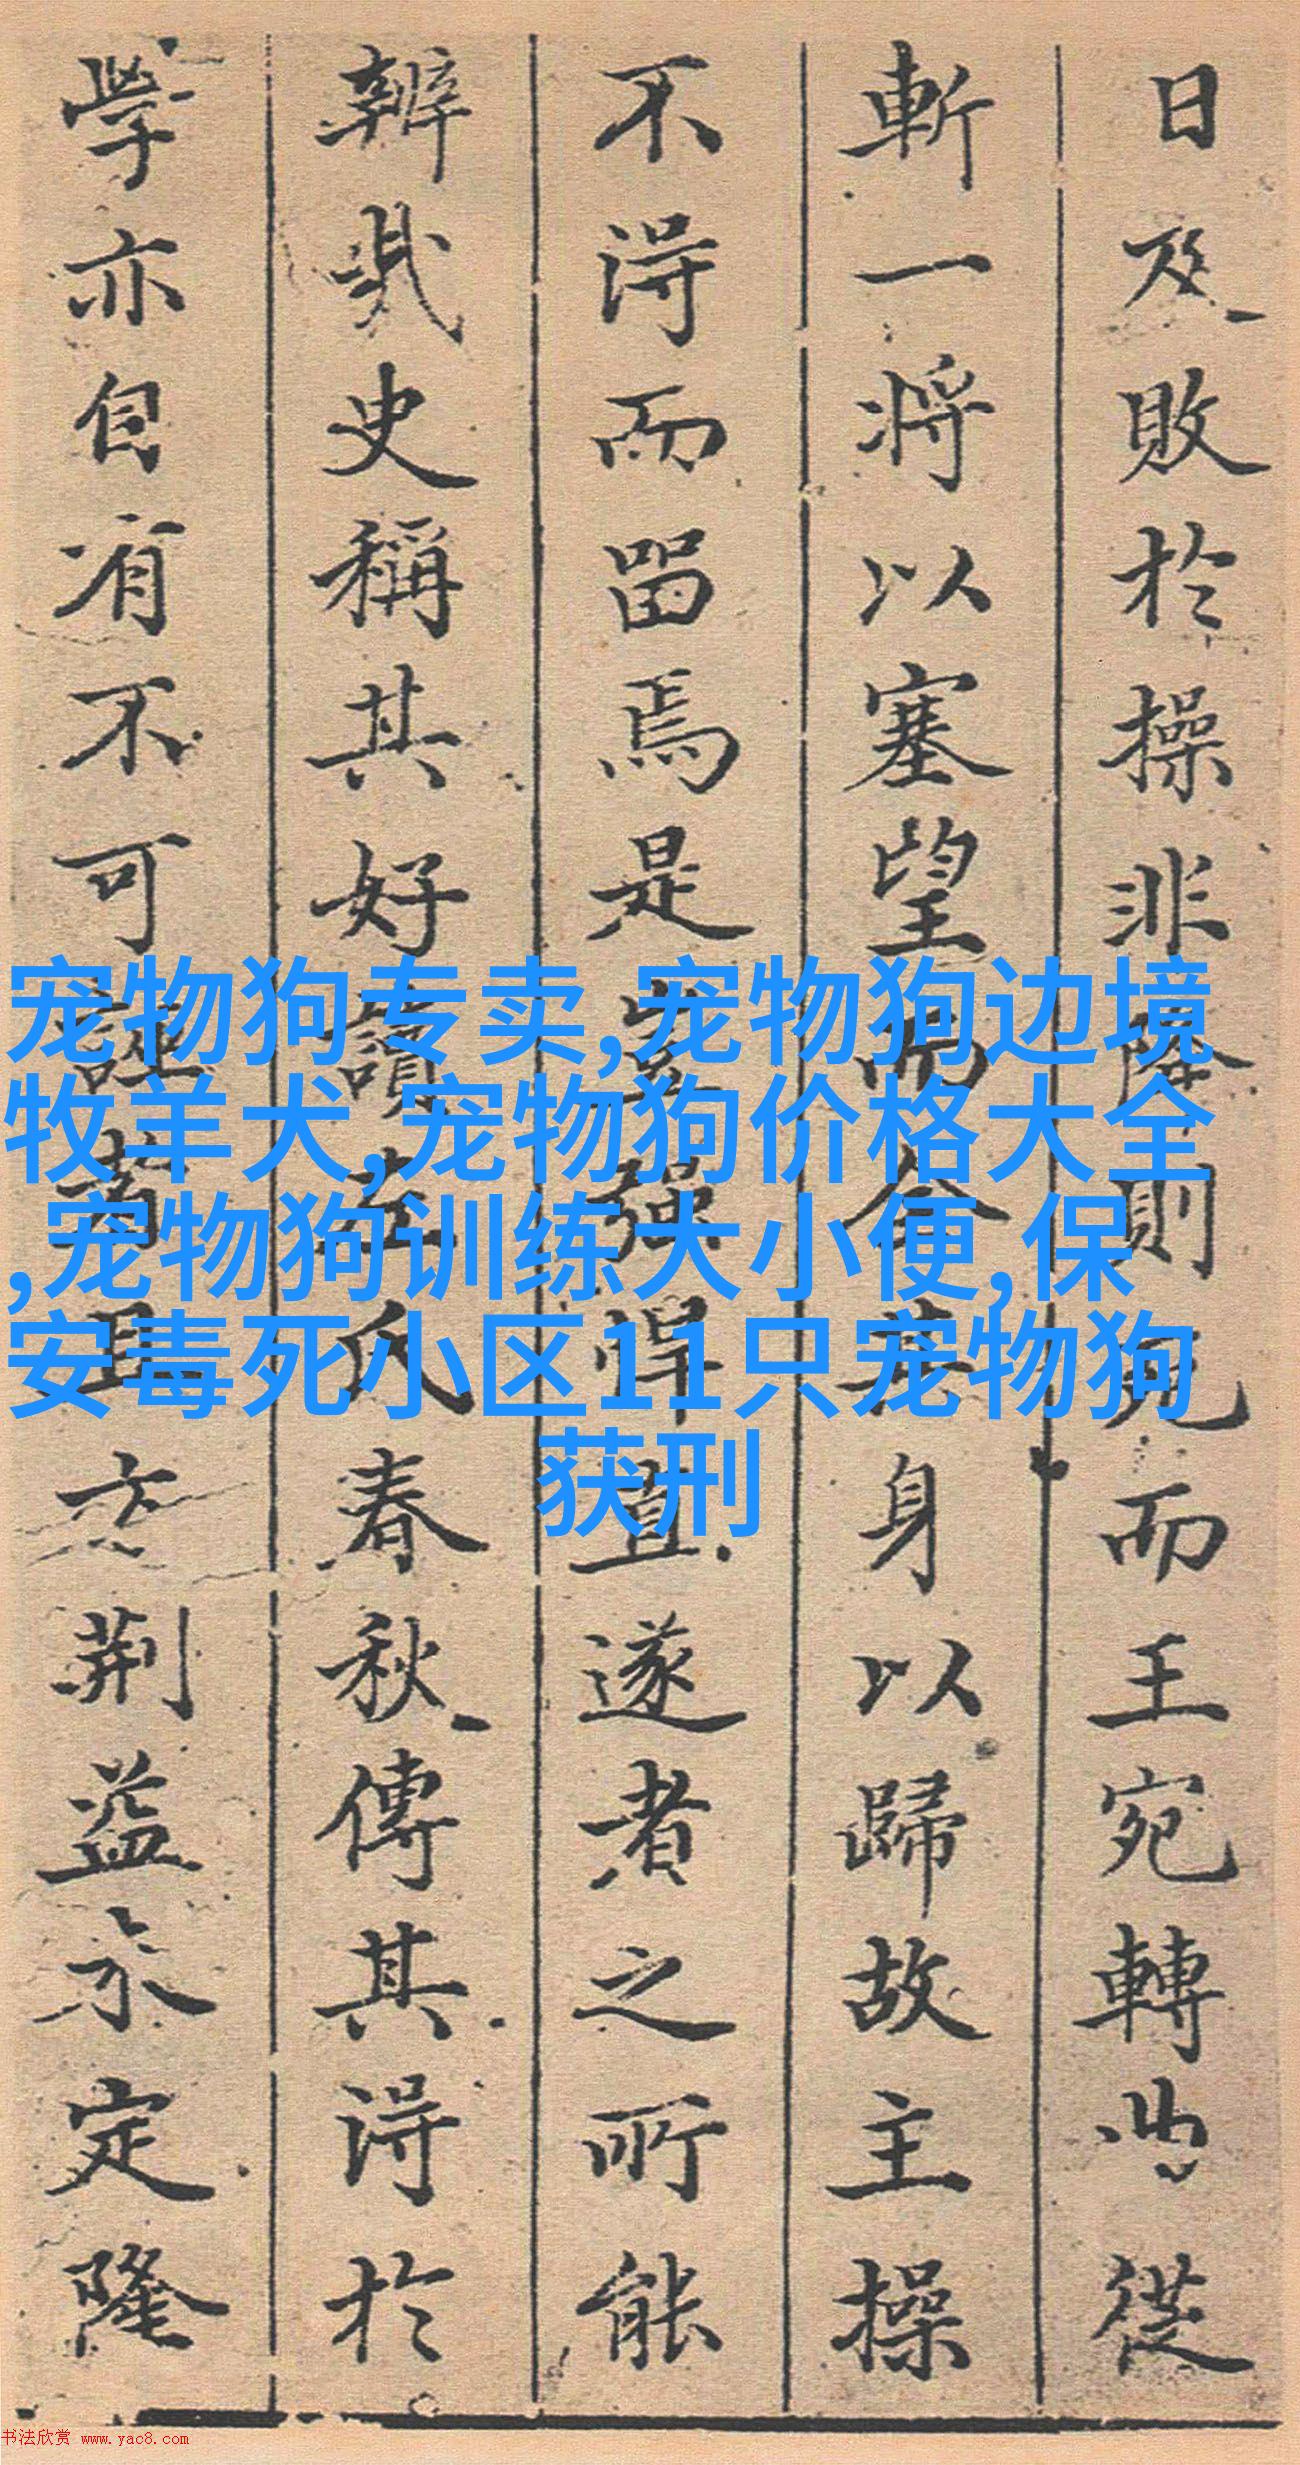 日及敗於操非降則而王宛轉曲從
斬一將以塞望而全其身以歸故主操
不得而留焉是豈強悍直遂者之所能
辨哉史稱其好讀左氏春秋傳其得於
學亦自有不可誣者且方荊益未定隆
宠物狗专卖,宠物狗边境
牧羊犬,宠物狗价格大全
,宠物狗训练大小便,保
安毒死小区11只宠物狗
获刑
书法欣赏 www.yac8.com